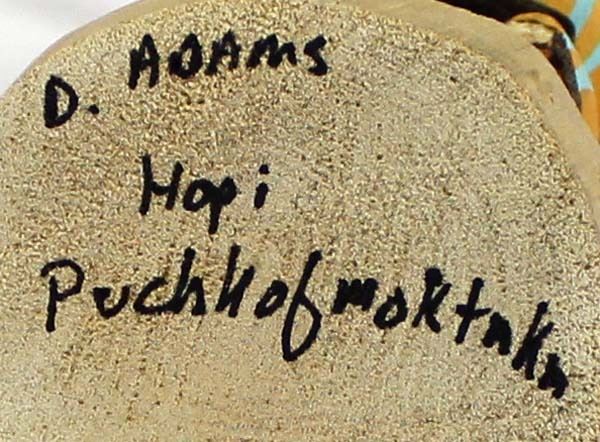 D. ADAMS
Hopi
Puchkofmoktaka